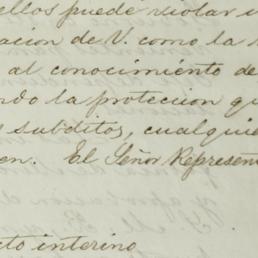 ellos puede violar
acion de V. como la
al conocimiento de
ndo la proteccion qu
subditos, cualquie
en. El Señor Represen
cto interino